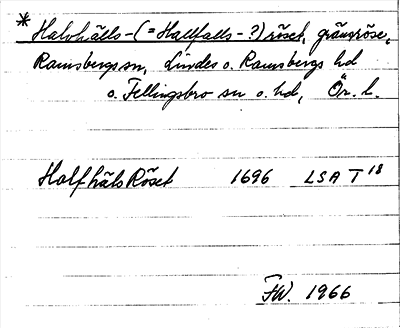 * Halvhälls- (= Hallfalls- ?) röset, gränsröse,
Ramsbergs sn, Lindes o. Ramsbergs hd
o. Fellingsbro sn o. hd, Ör. l.
Half häls Röset 1696 LSA T 18
FW. 1966